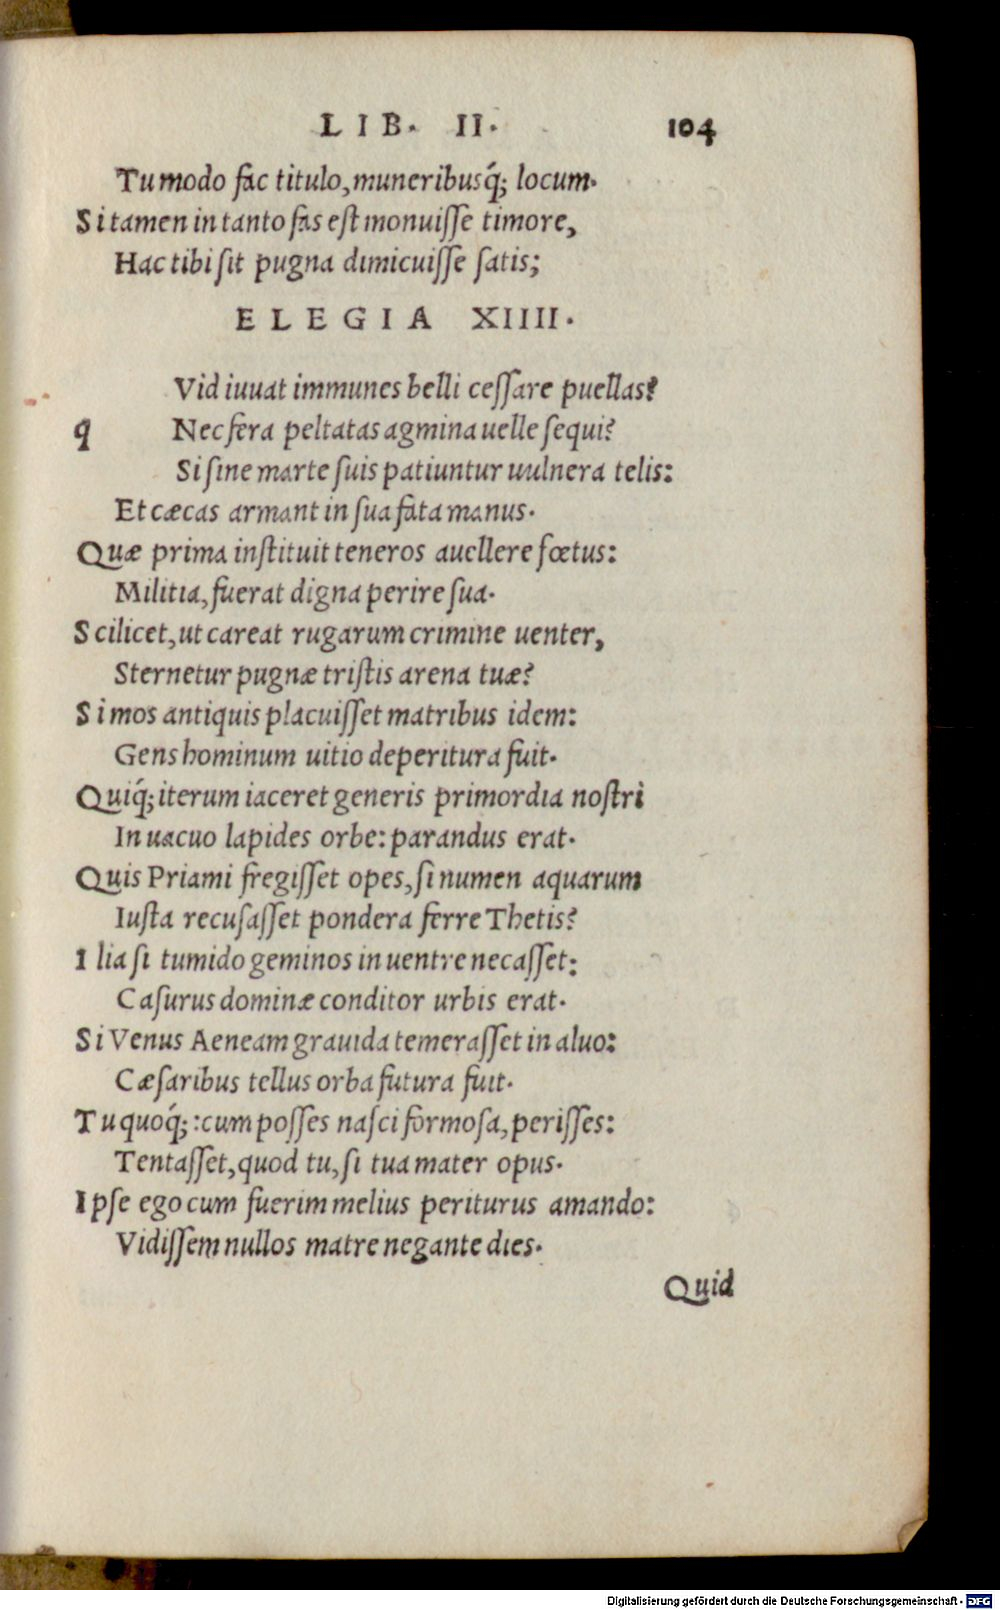 LIB. II. 104
Tu modo fac titulo, muneribusq́; locum.
Si tamen in tanto fas est monuiſſe timore,
Hac tibi ſit pugna dimicuiſſe ſatis;
ELEGIA XIIII.
Vid iuuat immunes belli ceſſare puellas?
q Nec fera peltatas agmina uelle ſequi?
Si ſine marte ſuis patiuntur uulnera telis:
Et cæcas armant in ſua fata manus.
Quæ prima inſtituit teneros auellere fœtus:
Militia, fuerat digna perire ſua.
Scilicet, ut careat rugarum crimine uenter,
Sternetur pugnæ triſtis arena tuæ?
Si mos antiquis placuiſſet matribus idem:
Gens hominum uitio deperitura fuit.
Quiq́; iterum iaceret generis primordia noſtri
In uacuo lapides orbe: parandus erat.
Quis Priami fregiſſet opes, ſi numen aquarum
Iuſta recuſaſſet pondera ferre Thetis?
Ilia ſi tumido geminos in uentre necaſſet:
Caſurus dominæ conditor urbis erat.
Si Venus Aeneam grauida temeraſſet in aluo:
Cæſaribus tellus orba futura fuit.
Tu quoq́;: cum poſſes naſci formoſa, periſſes:
Tentaſſet, quod tu, ſi tua mater opus.
Ipſe ego cum fuerim melius periturus amando:
Vidiſſem nullos matre negante dies.
Quid
Digitalisierung gefördert durch die Deutsche Forschungsgemeinschaft - DFG